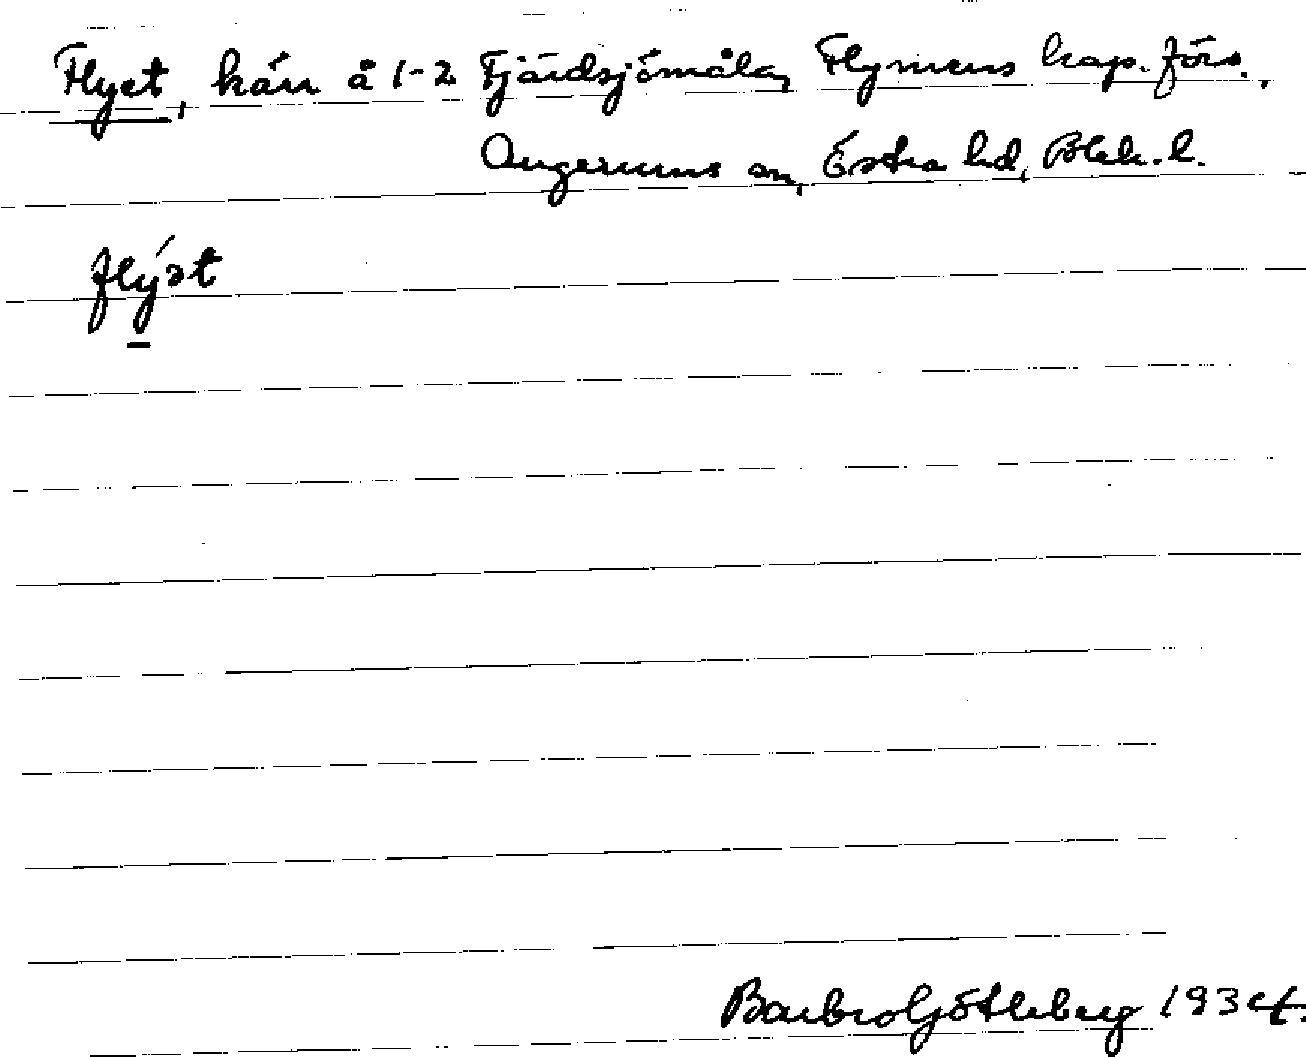 Flyet, kärr å 1-2 Fjärdsjömåla, Flymens kap. förs.,
Augerums sn, Östra hd, Blek. l.
flýət
Barbro Götleberg 1934.